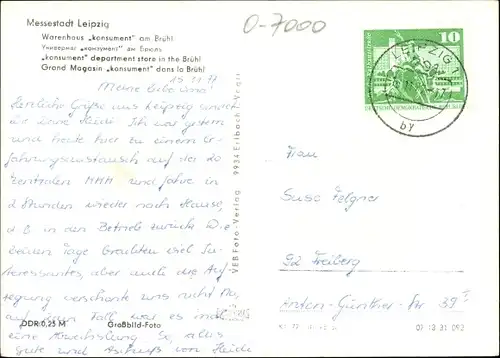 Messestadt Leipzig
Warenhaus „konsument" am Brühl
Универмаг „конзумент" ам Брюль
„konsument" department store in the Brühl
Grand Magasin „konsument" dans la Brühl
0-7000
15.11.77
Meine liebe Susa!
Herzliche Grüße aus Leipzig sendet
dir deine Heidi. Ich war gestern
und heute hier zu einem Er-
fahrungsaustausch auf der 20.
Zentralen MMM und fahre in
2 Stunden wieder nach Hause,
d. h. in den Betrieb zurück. Die
beiden Tage brachten viel In-
teressantes, aber auch die Auf-
regung verschonte uns nicht. Na,
auf jeden Fall war es mal
eine Abwechslung. So, alles
Gute und Auf von Heidi
DDR 0,25 M
Großbild-Foto
VEB Foto-Verlag 9934 Erlbach i. Vogtl.
LEIPZIG
by
10
Frau
Susa Felgner
92 Freiberg
Anton-Günther-Str. 39
01 13 31 092